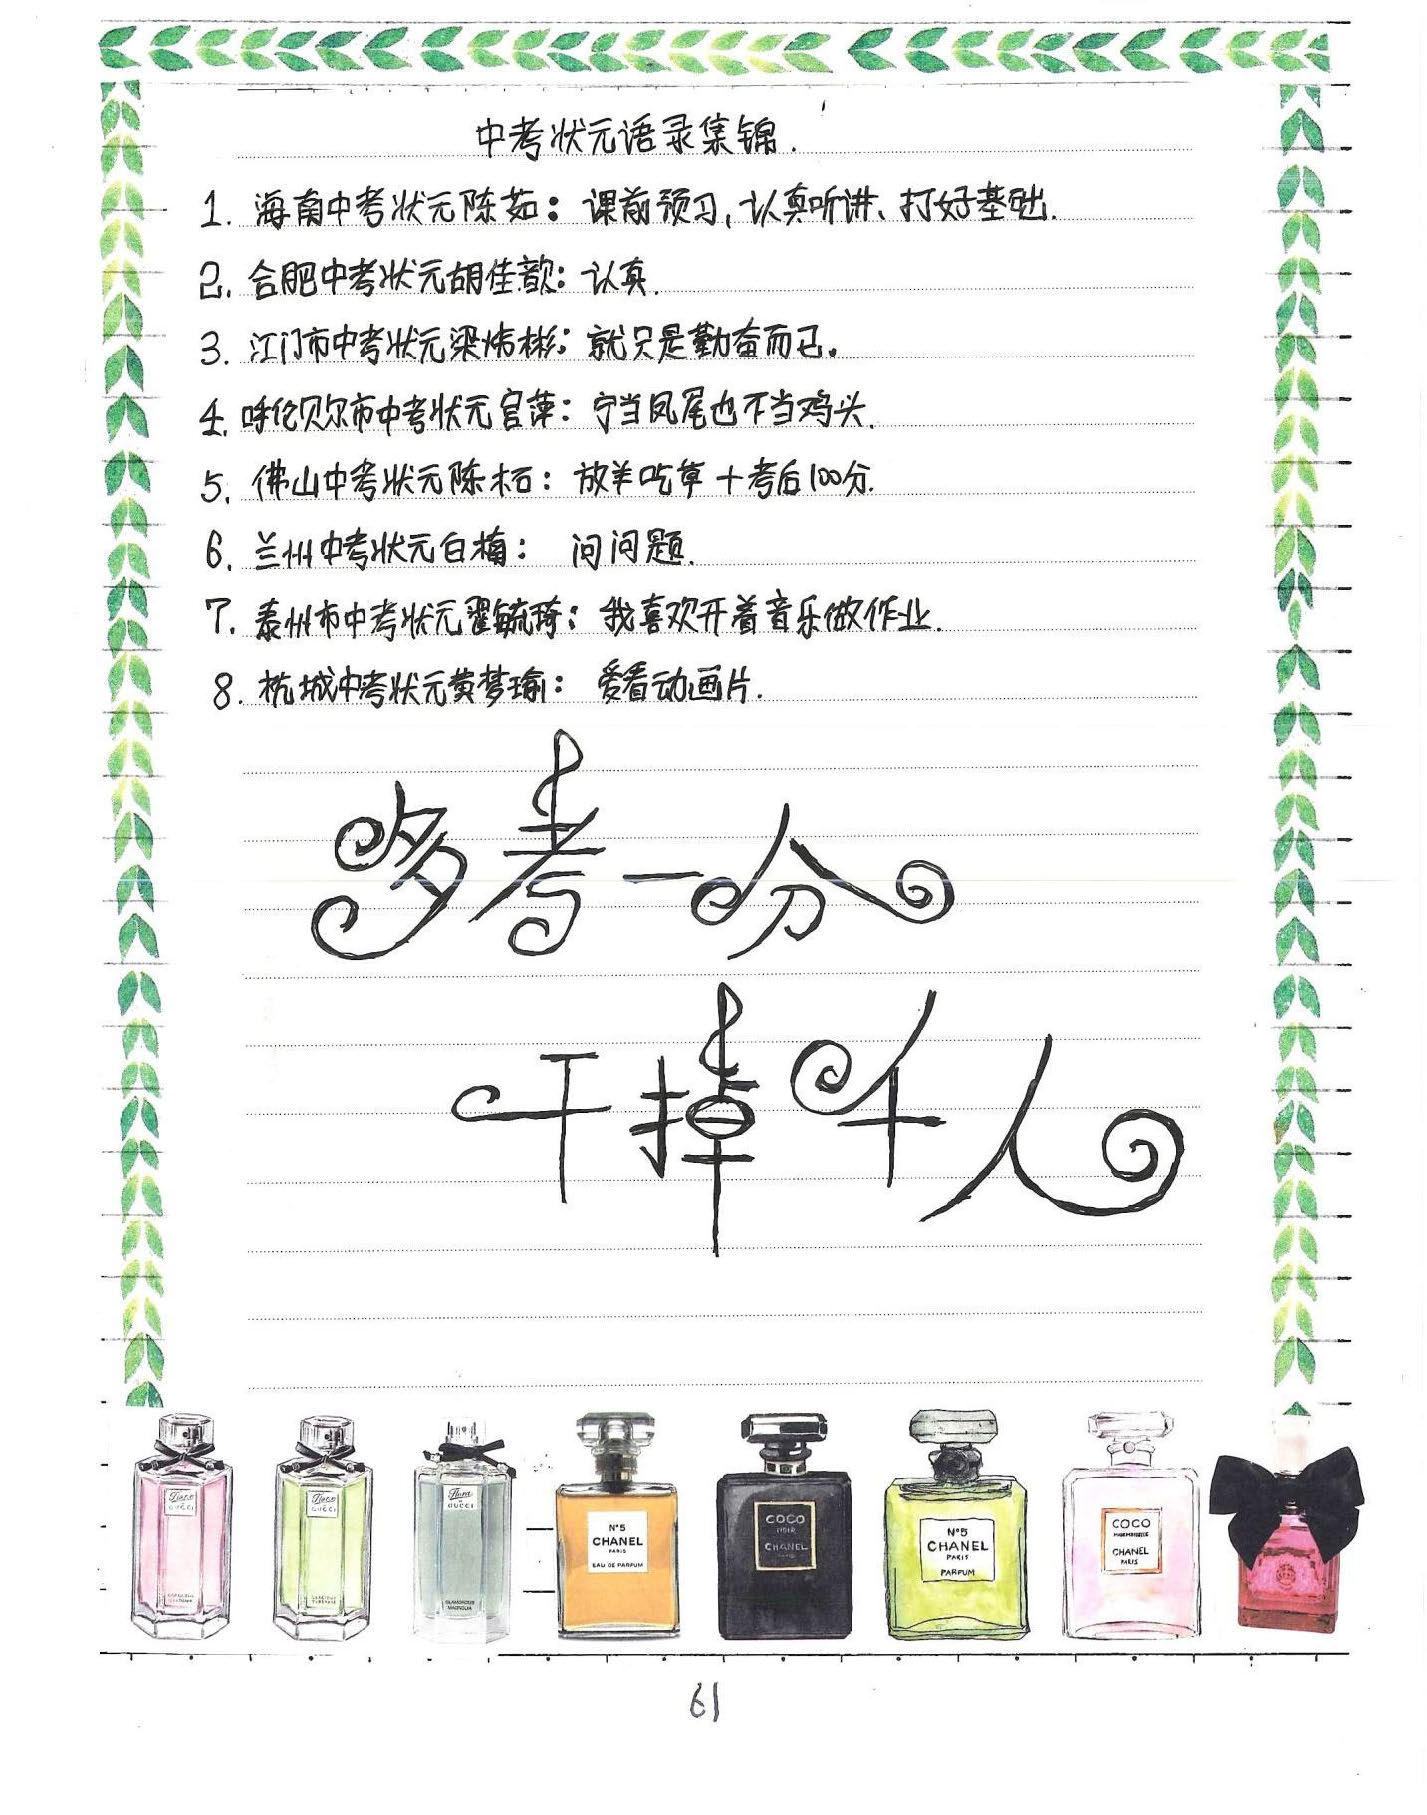 中考状元语录集锦.
1. 海南中考状元陈茹：课前预习,认真听讲、打好基础.
2. 合肥中考状元胡佳歆：认真.
3. 江门市中考状元梁炜彬：就只是勤奋而已。
4. 呼伦贝尔市中考状元宫萍：宁当凤尾也不当鸡头.
5. 佛山中考状元陈柘：放羊吃草+考后100分.
6. 兰州中考状元白楠：问问题.
7. 泰州市中考状元翟毓琦：我喜欢开着音乐做作业.
8. 杭城中考状元黄梦瑜：爱看动画片.
多考一分
干掉千人
Flora
GUCCI
Flora
GUCCI
Flora
GUCCI
GLAMOROUS
MAGNOLIA
N°5
CHANEL
PARIS
EAU DE PARFUM
COCO
NOIR
CHANEL
N°5
CHANEL
PARIS
PARFUM
COCO
MADEMOISELLE
CHANEL
PARIS
61